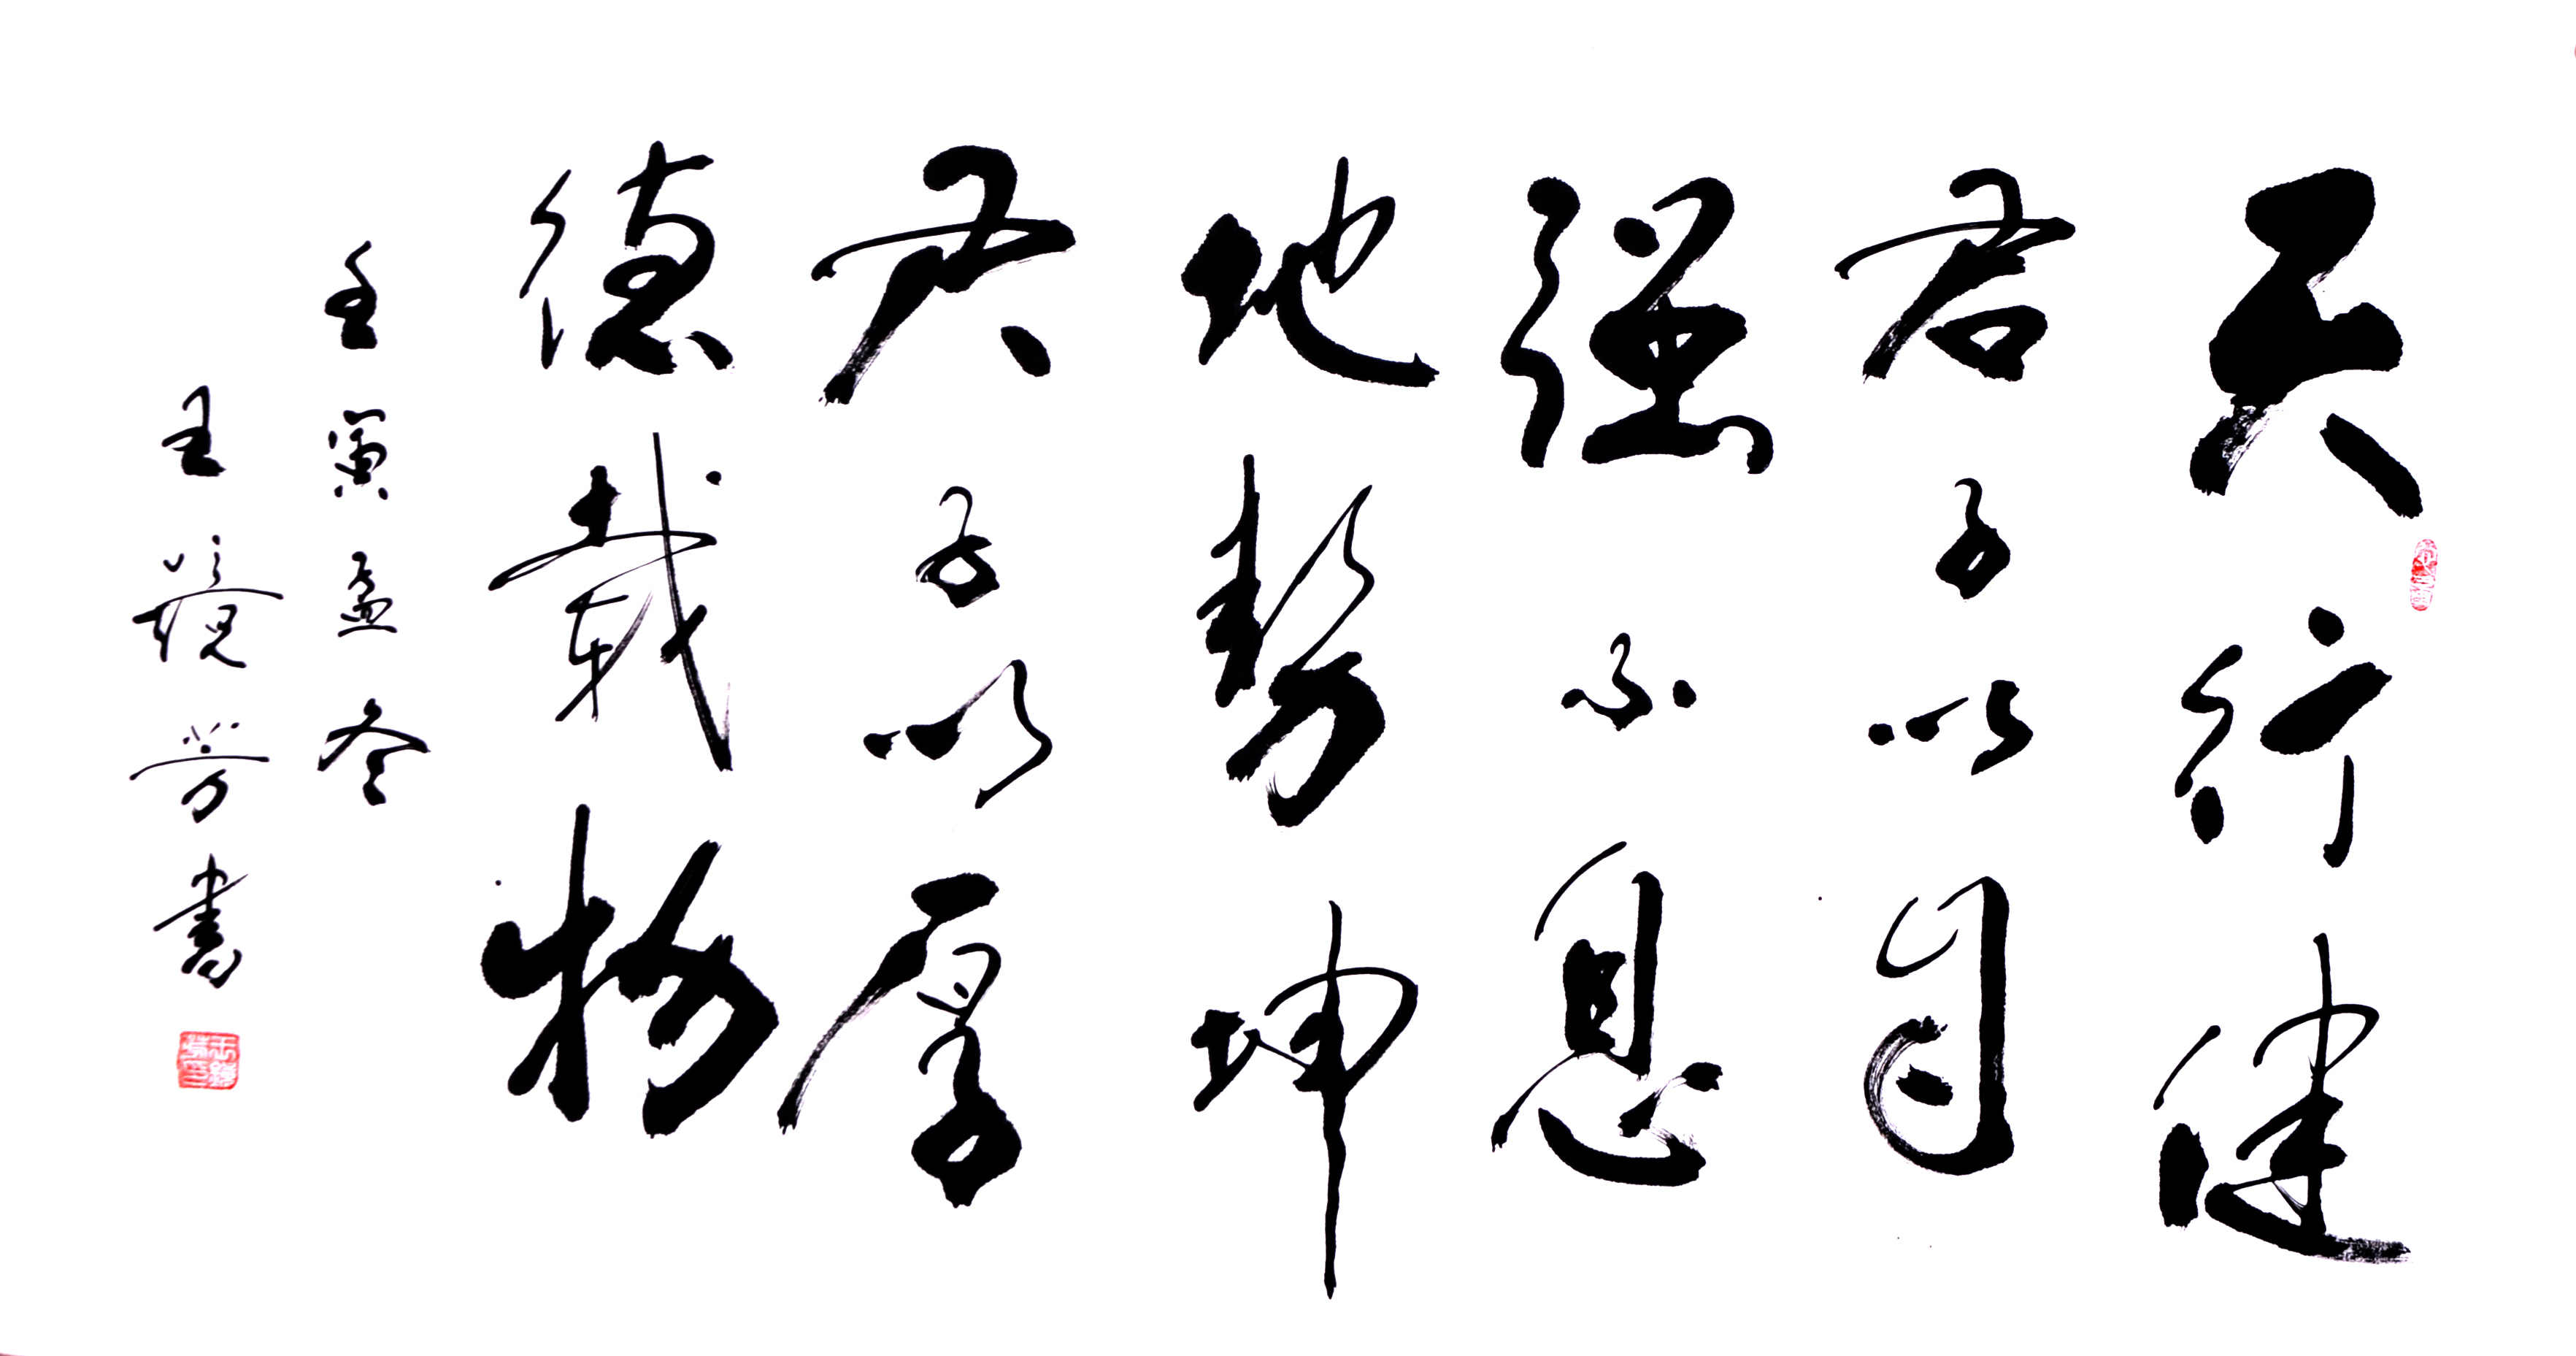 天行健
君子以自
强不息
地勢坤
君子以厚
德載物
壬寅孟冬
王芳書